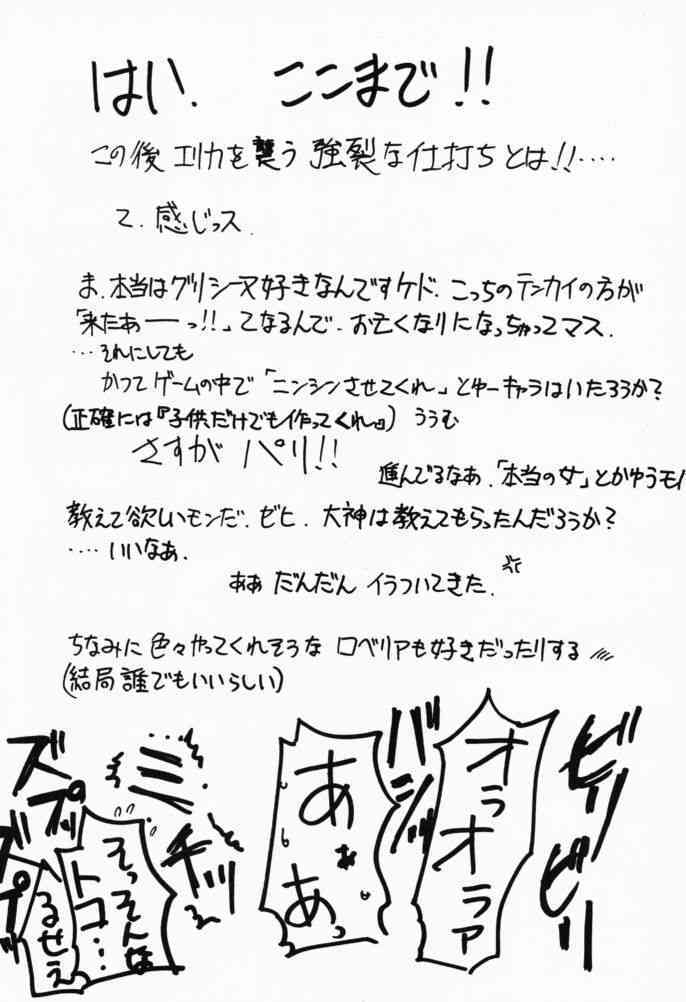 はい. ここまで!!
この後 エリカを襲う 強裂な仕打ちとは!!‥‥
て. 感じっス.
ま.本当はグリシーヌ好きなんですケド. こっちのテンカイの方が
「来たあーっ!!」てなるんで. お亡くなりになっちゃってマス.
…それにしても
かつてゲームの中で「ニンシンさせてくれ」とゆーキャラはいたろうか?
(正確には『子供だけでも作ってくれ』) ううむ
さすが パリ!!
進んでるなあ.「本当の女」とかゆうモノ
教えて欲しいモンだ. ゼヒ. 大神は教えてもらったんだろうか?
‥‥いいなあ.
ああ だんだん イラついてきた.
ちなみに 色々やってくれそうな ロベリアも好きだったりする
(結局誰でもいいらしい)
ビリ
ビリ
オラオラァ
バシッ
あぁあっ
ミチッ
そっそんなトコ…
るせぇ
ズプッ
ズプッ